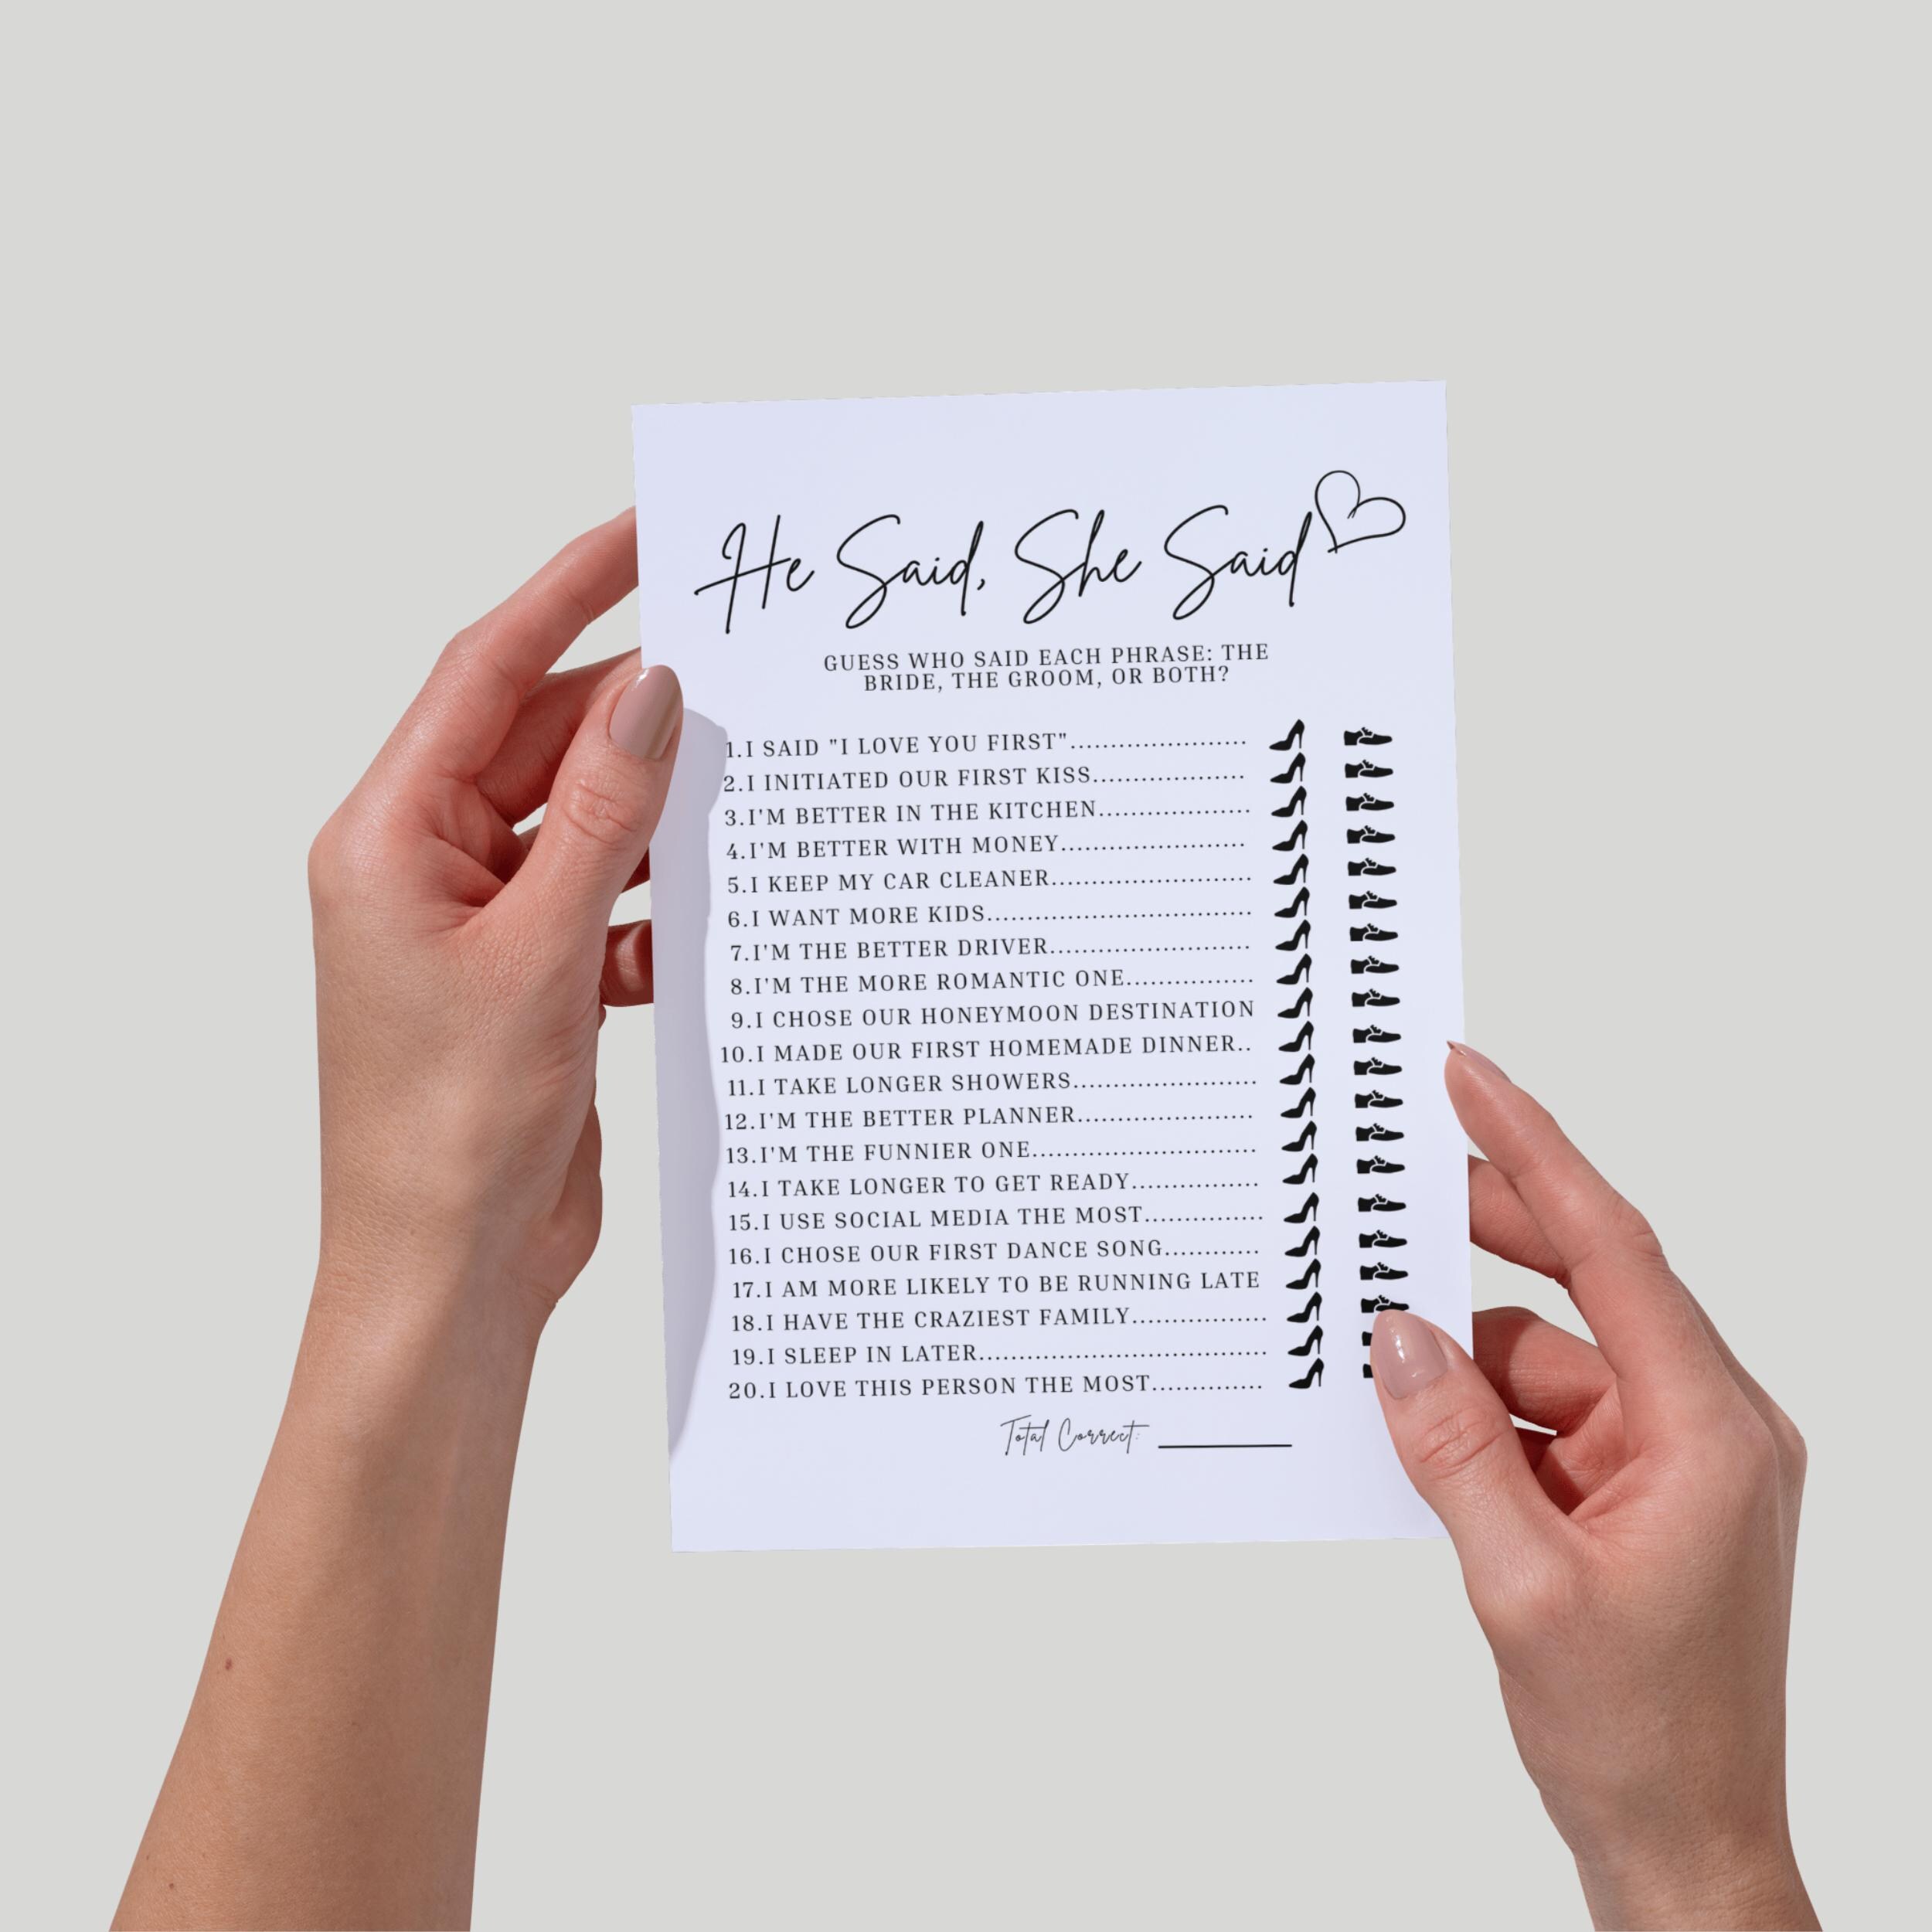 He Said, She Said
GUESS WHO SAID EACH PHRASE: THE
BRIDE, THE GROOM, OR BOTH?
1.I SAID "I LOVE YOU FIRST"......................
2.I INITIATED OUR FIRST KISS...................
3.I'M BETTER IN THE KITCHEN...................
4.I'M BETTER WITH MONEY.......................
5.I KEEP MY CAR CLEANER.........................
6.I WANT MORE KIDS.................................
7.I'M THE BETTER DRIVER.........................
8.I'M THE MORE ROMANTIC ONE................
9.I CHOSE OUR HONEYMOON DESTINATION
10.I MADE OUR FIRST HOMEMADE DINNER..
11.I TAKE LONGER SHOWERS.......................
12.I'M THE BETTER PLANNER......................
13.I'M THE FUNNIER ONE............................
14.I TAKE LONGER TO GET READY................
15.I USE SOCIAL MEDIA THE MOST...............
16.I CHOSE OUR FIRST DANCE SONG............
17.I AM MORE LIKELY TO BE RUNNING LATE
18.I HAVE THE CRAZIEST FAMILY.................
19.I SLEEP IN LATER....................................
20.I LOVE THIS PERSON THE MOST..............
Total Correct: ________